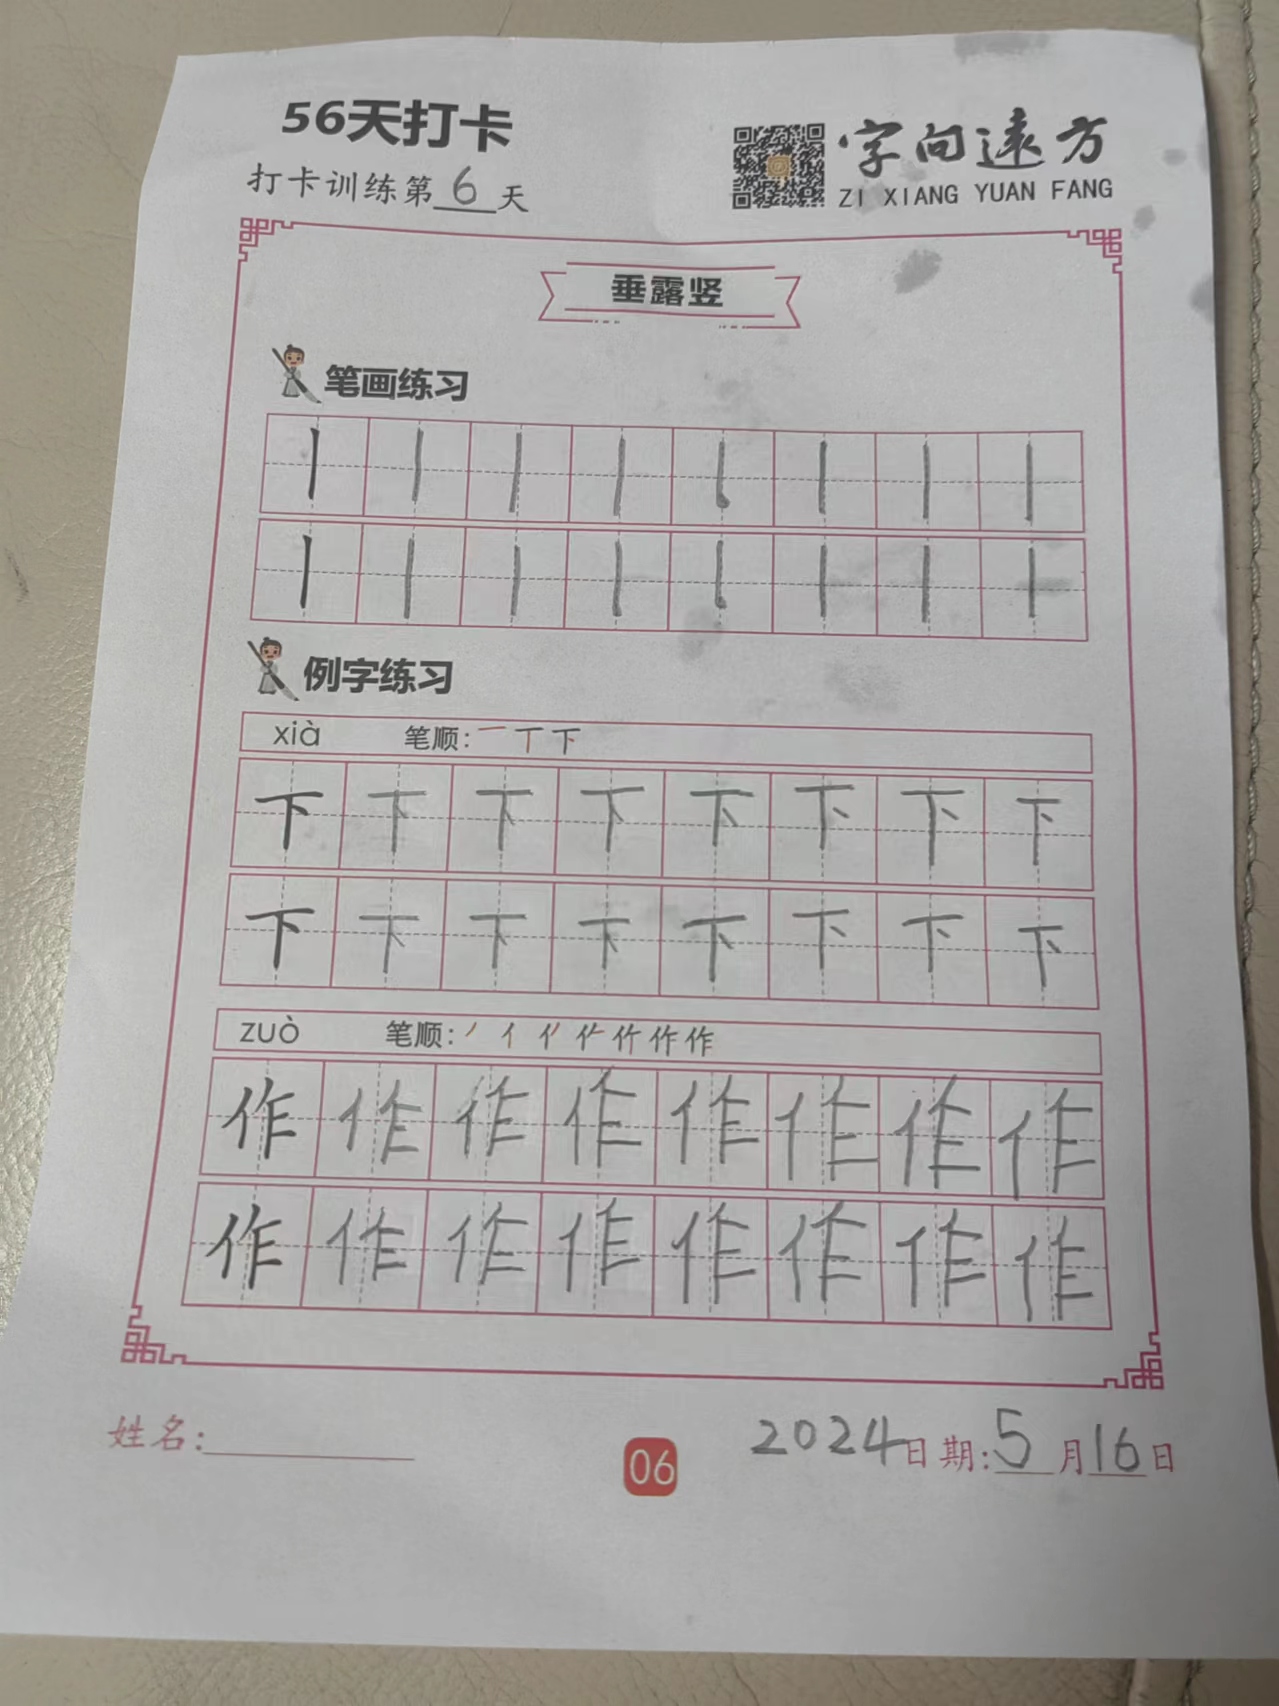 56天打卡
打卡训练第6天
字向遠方
ZI XIANG YUAN FANG
垂露竖
笔画练习
丨 丨 丨 丨 丨 丨 丨 丨
丨 丨 丨 丨 丨 丨 丨 丨
例字练习
xià 笔顺: 一 丅 下
下 下 下 下 下 下 下 下
下 下 下 下 下 下 下 下
zuò 笔顺: 丿 亻 作
作 作 作 作 作 作 作 作
作 作 作 作 作 作 作 作
姓名:
06
2024日期:5月16日